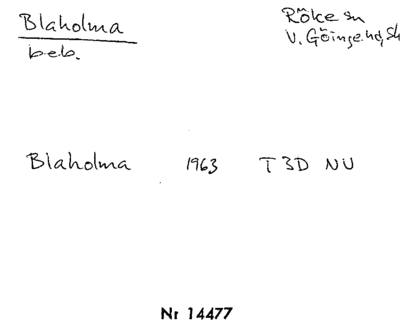 Blaholma
beb.
Röke sn
V. Göinge hd, Sk
Blaholma 1963 T3D NU
Nr 14477